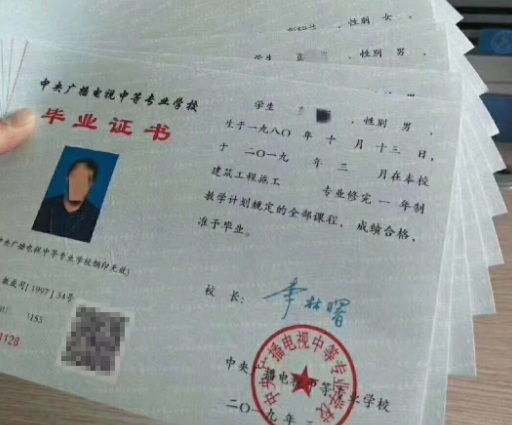 性别 女，
学生
性别 男
中央广播电视中等专业学校
毕业证书
中央广播电视中等专业学校钢印无效)
[1997]34号
155
1128
学生
性别 男，
生于一九八〇年 十 月 十三 日，
于 二〇一九 年 三 月在本校
建筑工程施工 专业修完 一 年制
教学计划规定的全部课程，成绩合格，
准予毕业。
校 长：
李林曙
中央广播电视中等专业学校
中央广播电视中等专业学校
二〇一九年